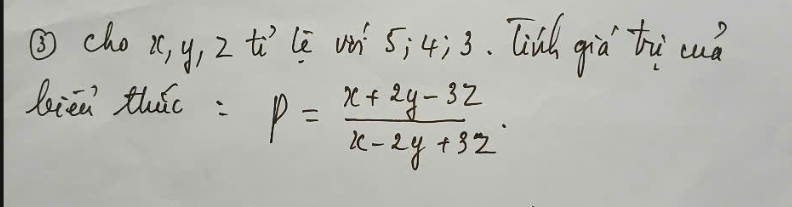 ③ cho x, y, z tỉ lệ với 5; 4; 3. Tính giá trị của
biểu thức : P = \frac{x + 2y - 3z}{x - 2y + 3z}.